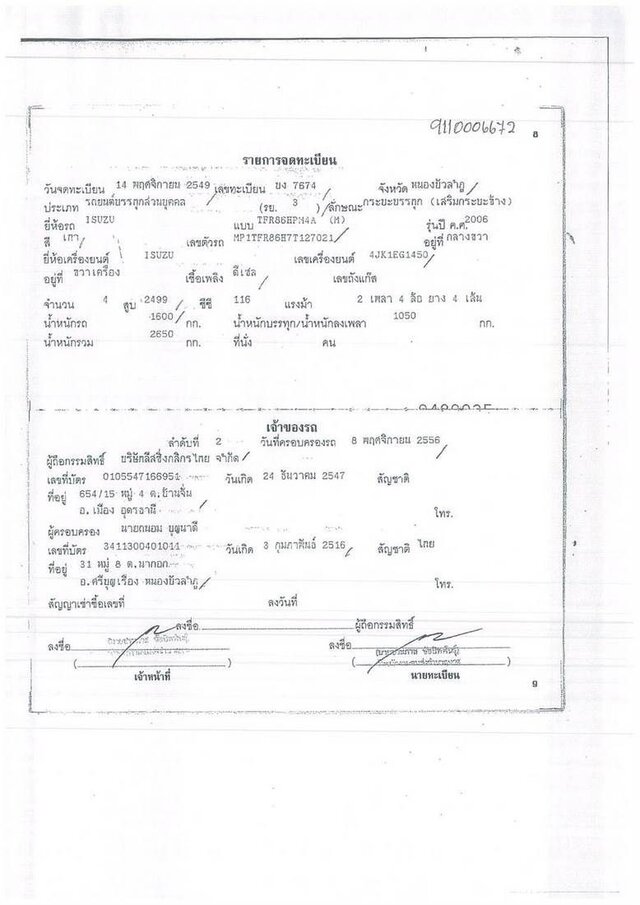 9110006672 8
รายการจดทะเบียน
วันจดทะเบียน 14 พฤศจิกายน 2549 เลขทะเบียน บง 7674 จังหวัด หนองบัวลำภู
ประเภท รถยนต์บรรทุกส่วนบุคคล (รย. 3 ) ลักษณะ กระบะบรรทุก (เสริมกระบะข้าง)
ยี่ห้อรถ ISUZU แบบ TFR86HPM4A (M) รุ่นปี ค.ศ. 2006
สี เทา เลขตัวรถ MP1TFR86H7T127021 อยู่ที่ กลางขวา
ยี่ห้อเครื่องยนต์ ISUZU เลขเครื่องยนต์ 4JK1EG1450
อยู่ที่ ขวาเครื่อง เชื้อเพลิง ดีเซล เลขถังแก๊ส
จำนวน 4 สูบ 2499 ซีซี 116 แรงม้า 2 เพลา 4 ล้อ ยาง 4 เส้น
น้ำหนักรถ 1600 กก. น้ำหนักบรรทุก/น้ำหนักลงเพลา 1050 กก.
น้ำหนักรวม 2650 กก. ที่นั่ง คน
เจ้าของรถ
ลำดับที่ 2 วันที่ครอบครองรถ 8 พฤศจิกายน 2556
ผู้ถือกรรมสิทธิ์ บริษัทลีสซิ่งกสิกรไทย จำกัด
เลขที่บัตร 0105547166951 วันเกิด 24 ธันวาคม 2547 สัญชาติ
ที่อยู่ 654/15 หมู่ 4 ต.บ้านจั่น
อ.เมือง อุดรธานี โทร.
ผู้ครอบครอง นายถนอม บุญนาดี
เลขที่บัตร 3411300401011 วันเกิด 3 กุมภาพันธ์ 2516 สัญชาติ ไทย
ที่อยู่ 31 หมู่ 8 ต.นากอก
อ.ศรีบุญเรือง หนองบัวลำภู โทร.
สัญญาเช่าซื้อเลขที่ ลงวันที่
ลงชื่อ ผู้ถือกรรมสิทธิ์
ลงชื่อ ลงชื่อ
( ) ( )
เจ้าหน้าที่ นายทะเบียน
9